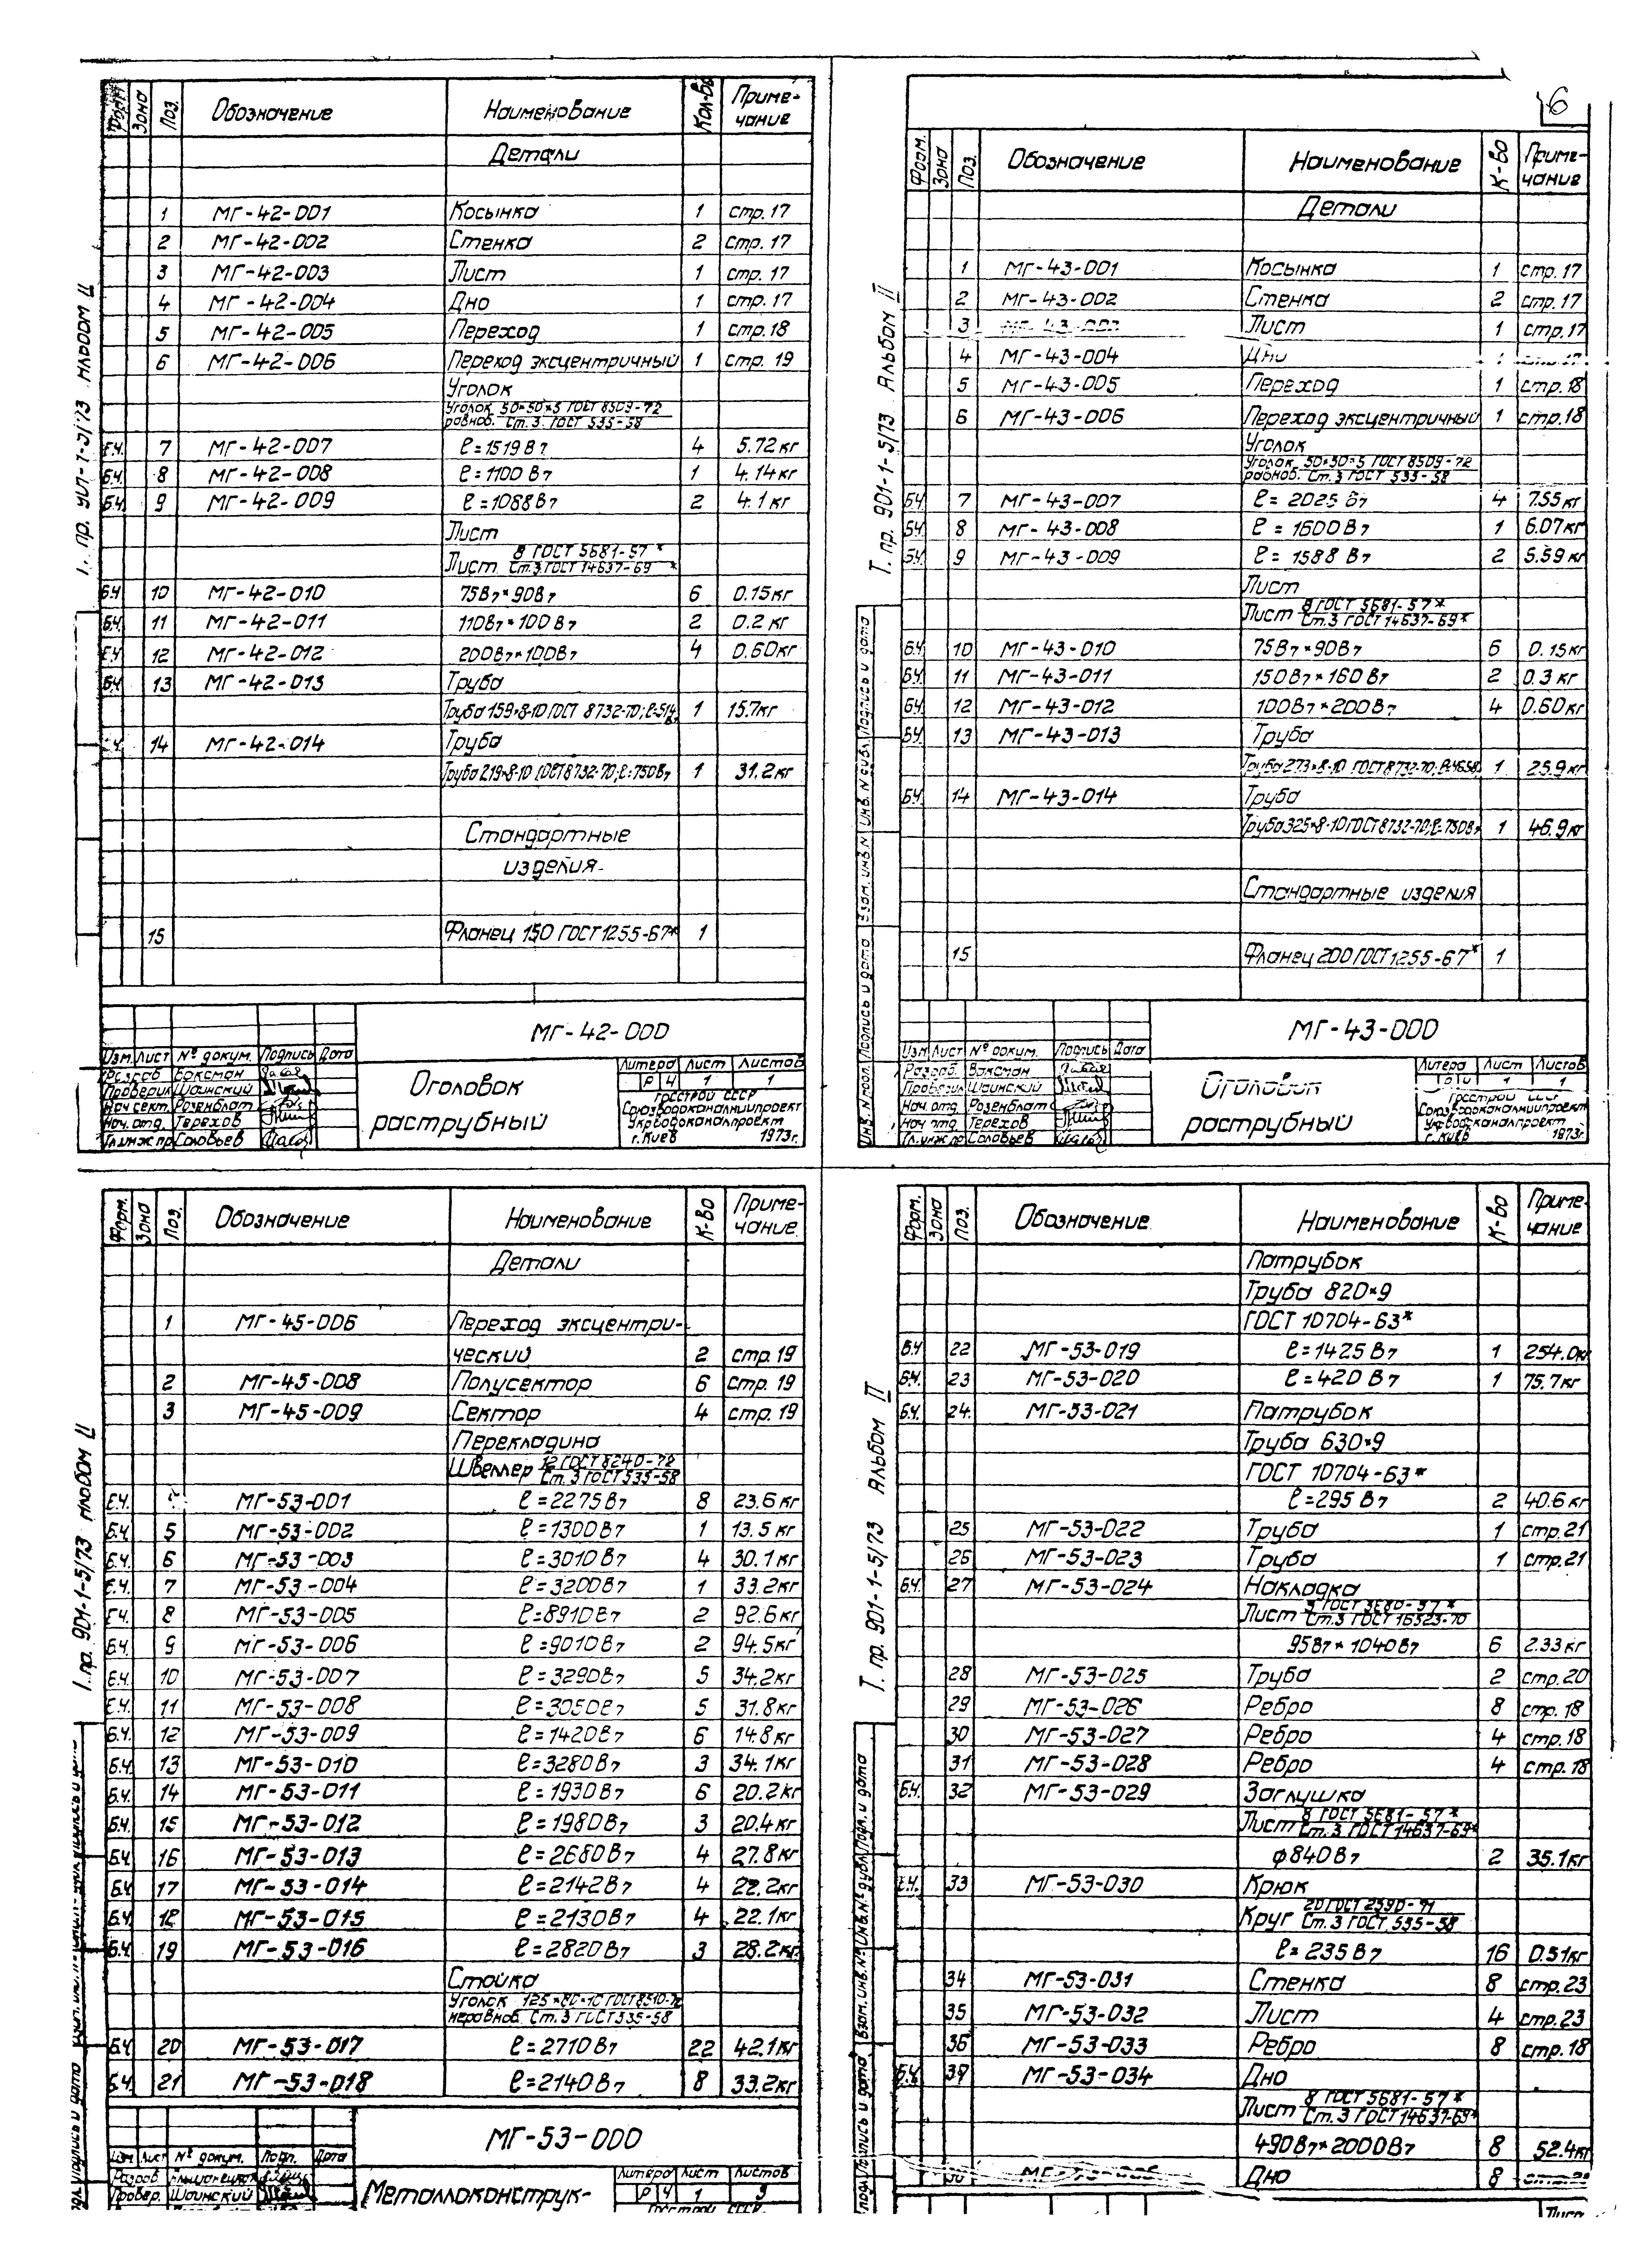 6
Форм. Зона Поз. Обозначение Наименование Кол-во Приме-
чание
Детали
1 МГ-42-001 Косынка 1 стр.17
2 МГ-42-002 Стенка 2 стр.17
3 МГ-42-003 Лист 1 стр.17
4 МГ-42-004 Дно 1 стр.17
5 МГ-42-005 Переход 1 стр.18
6 МГ-42-006 Переход эксцентричный 1 стр. 19
Уголок
Уголок 50×50×5 ГОСТ 8509-72
равноб. Ст.3 ГОСТ 535-58
Б.Ч. 7 МГ-42-007 ℓ=1519В7 4 5.72кг
Б.Ч. 8 МГ-42-008 ℓ=1100В7 1 4.14кг
Б.Ч. 9 МГ-42-009 ℓ=1088В7 2 4.1кг
Лист
Лист 8 ГОСТ 5681-57*
Ст.3 ГОСТ 14637-69*
Б.Ч. 10 МГ-42-010 75В7×90В7 6 0.15кг
Б.Ч. 11 МГ-42-011 110В7×100В7 2 0.2кг
Б.Ч. 12 МГ-42-012 200В7×100В7 4 0.60кг
Б.Ч. 13 МГ-42-013 Труба
Труба 159×8-10 ГОСТ 8732-70; ℓ=514В7 1 15.7кг
14 МГ-42-014 Труба
Труба 219×8-10 ГОСТ 8732-70; ℓ=750В7 1 31.2кг
Стандартные
изделия
15 Фланец 150 ГОСТ 1255-67* 1
МГ-42-000
Изм. Лист № докум. Подпись Дата
Разраб. Ваксман
Проверил Шаинский
Нач.сект. Розенблат
Нач. отд. Терехов
Гл.инж.пр Соловьев
Оголовок
раструбный
Литера Лист Листов
Р Ч 1 1
Госстрой СССР
Союзводоканалниипроект
Укрводоканалпроект
г.Киев 1973г.
Т. пр. 901-1-5/73 Альбом II
Форм. Зона Поз. Обозначение Наименование К-во Приме-
чание
Детали
1 МГ-43-001 Косынка 1 стр.17
2 МГ-43-002 Стенка 2 стр.17
3 МГ-43-003 Лист 1 стр.17
4 МГ-43-004 Дно 1
5 МГ-43-005 Переход 1 стр.18
6 МГ-43-006 Переход эксцентричный 1 стр.18
Уголок
Уголок 50×50×5 ГОСТ 8509-72
равноб. Ст.3 ГОСТ 535-58
Б.Ч. 7 МГ-43-007 ℓ=2025В7 4 7.55кг
Б.Ч. 8 МГ-43-008 ℓ=1600В7 1 6.07кг
Б.Ч. 9 МГ-43-009 ℓ=1588В7 2 5.59кг
Лист
Лист 8 ГОСТ 5681-57*
Ст.3 ГОСТ 14637-69*
Б.Ч. 10 МГ-43-010 75В7×90В7 6 0.15кг
Б.Ч. 11 МГ-43-011 150В7×160В7 2 0.3кг
Б.Ч. 12 МГ-43-012 100В7×200В7 4 0.60кг
Б.Ч. 13 МГ-43-013 Труба
Труба 273×8-10 ГОСТ 8732-70; 1 25.9кг
Б.Ч. 14 МГ-43-014 Труба
Труба 325×8-10 ГОСТ 8732-70; ℓ=750В7 1 46.9кг
Стандартные изделия
15 Фланец 200 ГОСТ 1255-67* 1
МГ-43-000
Изм Лист № докум. Подпись Дата
Разраб. Ваксман
Проверил Шаинский
Нач. отд. Розенблат
Нач отд. Терехов
Гл.инж.пр Соловьев
Оголовок
раструбный
Литера Лист Листов
1 1
Госстрой СССР
Союзводоканалниипроект
Укрводоканалпроект
г. Киев 1973г.
Инв. № подл. Подпись и дата Взам. инв. № Инв. № дубл. Подпись и дата
Т. пр. 901-1-5/73 Альбом II
Форм. Зона Поз. Обозначение Наименование К-во Приме-
чание
Детали
1 МГ-45-006 Переход эксцентри-
ческий 2 стр.19
2 МГ-45-008 Полусектор 6 стр.19
3 МГ-45-009 Сектор 4 стр.19
Перекладина
Швеллер 12 ГОСТ 8240-72
Ст.3 ГОСТ 535-58
Б.Ч. МГ-53-001 ℓ=2275В7 8 23.6кг
Б.Ч. 5 МГ-53-002 ℓ=1300В7 1 13.5кг
Б.Ч. 6 МГ-53-003 ℓ=3010В7 4 30.1кг
Б.Ч. 7 МГ-53-004 ℓ=3200В7 1 33.2кг
Б.Ч. 8 МГ-53-005 ℓ=8910В7 2 92.6кг
Б.Ч. 9 МГ-53-006 ℓ=9010В7 2 94.5кг
Б.Ч. 10 МГ-53-007 ℓ=3290В7 5 34.2кг
Б.Ч. 11 МГ-53-008 ℓ=3050В7 5 31.8кг
Б.Ч. 12 МГ-53-009 ℓ=1420В7 6 14.8кг
Б.Ч. 13 МГ-53-010 ℓ=3280В7 3 34.1кг
Б.Ч. 14 МГ-53-011 ℓ=1930В7 6 20.2кг
Б.Ч. 15 МГ-53-012 ℓ=1980В7 3 20.4кг
Б.Ч. 16 МГ-53-013 ℓ=2680В7 4 27.8кг
Б.Ч. 17 МГ-53-014 ℓ=2142В7 4 22.2кг
Б.Ч. 18 МГ-53-015 ℓ=2130В7 4 22.1кг
Б.Ч. 19 МГ-53-016 ℓ=2820В7 3 28.2кг
Стойка
Уголок 125×80×10 ГОСТ 8510-72
неравноб. Ст.3 ГОСТ 535-58
Б.Ч. 20 МГ-53-017 ℓ=2710В7 22 42.1кг
Б.Ч. 21 МГ-53-018 ℓ=2140В7 8 33.2кг
МГ-53-000
Изм Лист № докум. Подп. Дата
Разраб
Провер. Шаинский
Металлоконструк-
Литера Лист Листов
Р Ч 1 3
Госстрой СССР
Т. пр. 901-1-5/73 Альбом II
Форм. Зона Поз. Обозначение Наименование К-во Приме-
чание
Патрубок
Труба 820×9
ГОСТ 10704-63*
Б.Ч 22 МГ-53-019 ℓ=1425В7 1 254.0кг
Б.Ч. 23 МГ-53-020 ℓ=420В7 1 75.7кг
Б.Ч. 24. МГ-53-021 Патрубок
Труба 630×9
ГОСТ 10704-63*
ℓ=295В7 2 40.6кг
25 МГ-53-022 Труба 1 стр.21
26 МГ-53-023 Труба 1 стр.21
Б.Ч. 27 МГ-53-024 Накладка
Лист 3 ГОСТ 3680-57*
Ст.3 ГОСТ 16523-70
95В7×1040В7 6 2.33кг
28 МГ-53-025 Труба 2 стр.20
29 МГ-53-026 Ребро 8 стр.18
30 МГ-53-027 Ребро 4 стр.18
31 МГ-53-028 Ребро 4 стр.18
Б.Ч. 32 МГ-53-029 Заглушка
Лист 8 ГОСТ 5681-57*
Ст.3 ГОСТ 14637-69*
ф840В7 2 35.1кг
Б.Ч. 33 МГ-53-030 Крюк
Круг 20 ГОСТ 2590-71
Ст.3 ГОСТ 535-58
ℓ=235В7 16 0.51кг
34 МГ-53-031 Стенка 8 стр.23
35 МГ-53-032 Лист 4 стр.23
36 МГ-53-033 Ребро 8 стр.18
Б.Ч. 37 МГ-53-034 Дно
Лист 8 ГОСТ 5681-57*
Ст.3 ГОСТ 14637-69*
490В7×2000В7 8 52.4кг
Дно 8
Лист
Подпись и дата Взам. инв. № Инв. № дубл. Подп. и дата
Т. пр. 901-1-5/73 Альбом II